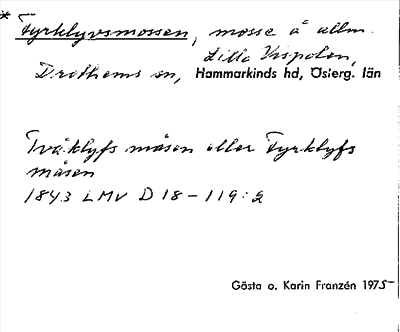 * Fyrklyvsmossen, mosse å allm.
Lilla Vispolen,
Drothems sn, Hammarkinds hd, Österg. län
Tväklyfs måsen eller Fyrklyfs
måsen
1843 LMV D18-119:2
Gösta o. Karin Franzén 1975